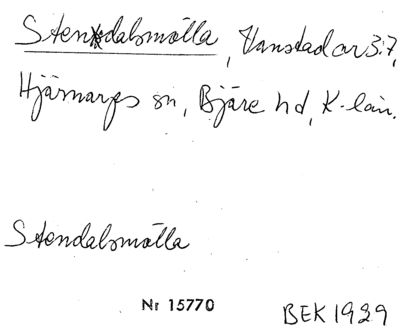 Stendalsmölla, Vanstad ar 3:7,
Hjärnarps sn, Bjäre hd, K-län.
Stendalsmölla
Nr 15770
BEK 1929